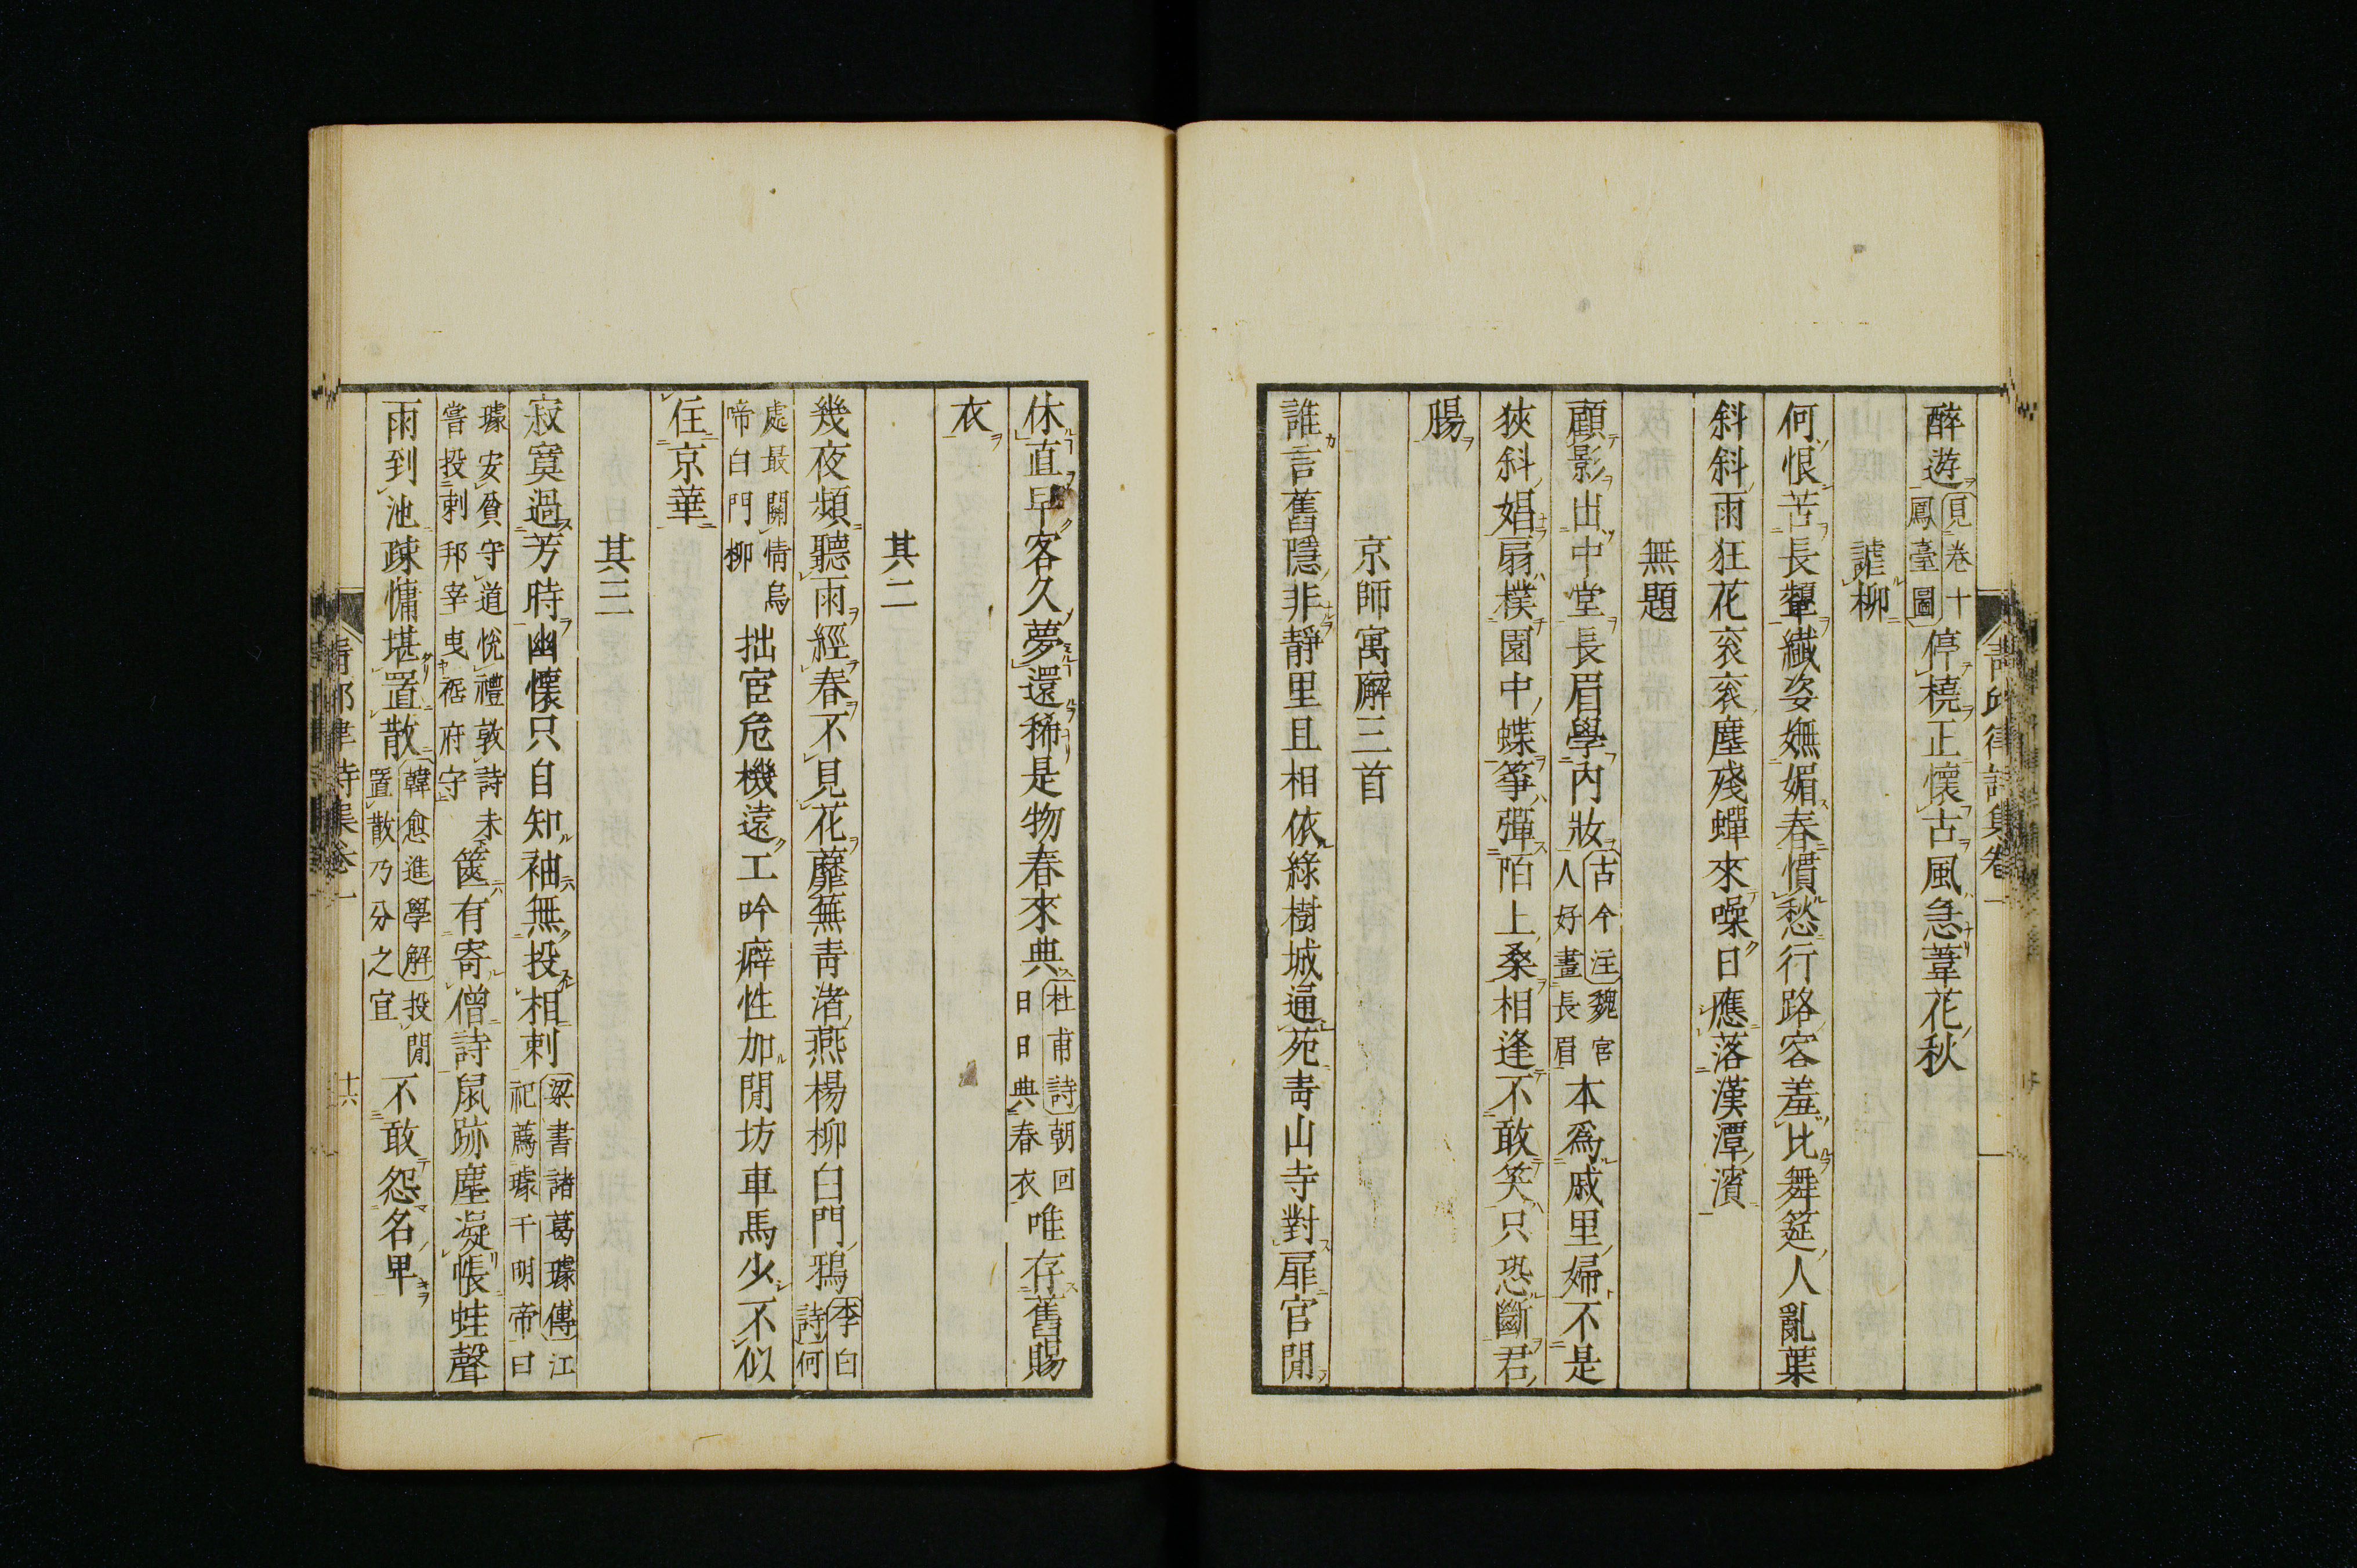 醉遊見卷十鳳臺圖停橈正懷古風急葦花秋
謔柳
何恨苦長顰纎姿嫵媚春慣愁行路客羞比舞筵人亂葉
斜斜雨狂花衮衮塵殘蟬來噪日應落漢潭濱
無題
顧影出中堂長眉學内妝古今注魏宮人好畫長眉本爲戚里婦不是
狹斜娼扇樸園中蝶筝彈陌上桑相逢不敢笑只恐斷君
腸
京師寓廨三首
誰言舊隱非靜里且相依綠樹城通苑青山寺對扉官閒
休直早客久夢還稀是物春來典杜甫詩朝回日日典春衣唯存舊賜
衣
其二
幾夜頻聽雨經春不見花蘼蕪青渚燕楊柳白門鴉李白詩何
處最關情烏啼白門柳拙宦危機遠工吟癖性加閒坊車馬少不似
住京華
其三
寂寞過芳時幽懷只自知袖無投相刺梁書諸葛璩傳江祀薦璩于明帝曰
璩安貧守道悦禮敦詩未嘗投刺邦宰曳裾府守篋有寄僧詩鼠跡塵凝帳蛙聲
雨到池疎慵堪置散韓愈進學解投閒置散乃分之宜不敢怨名卑
十六